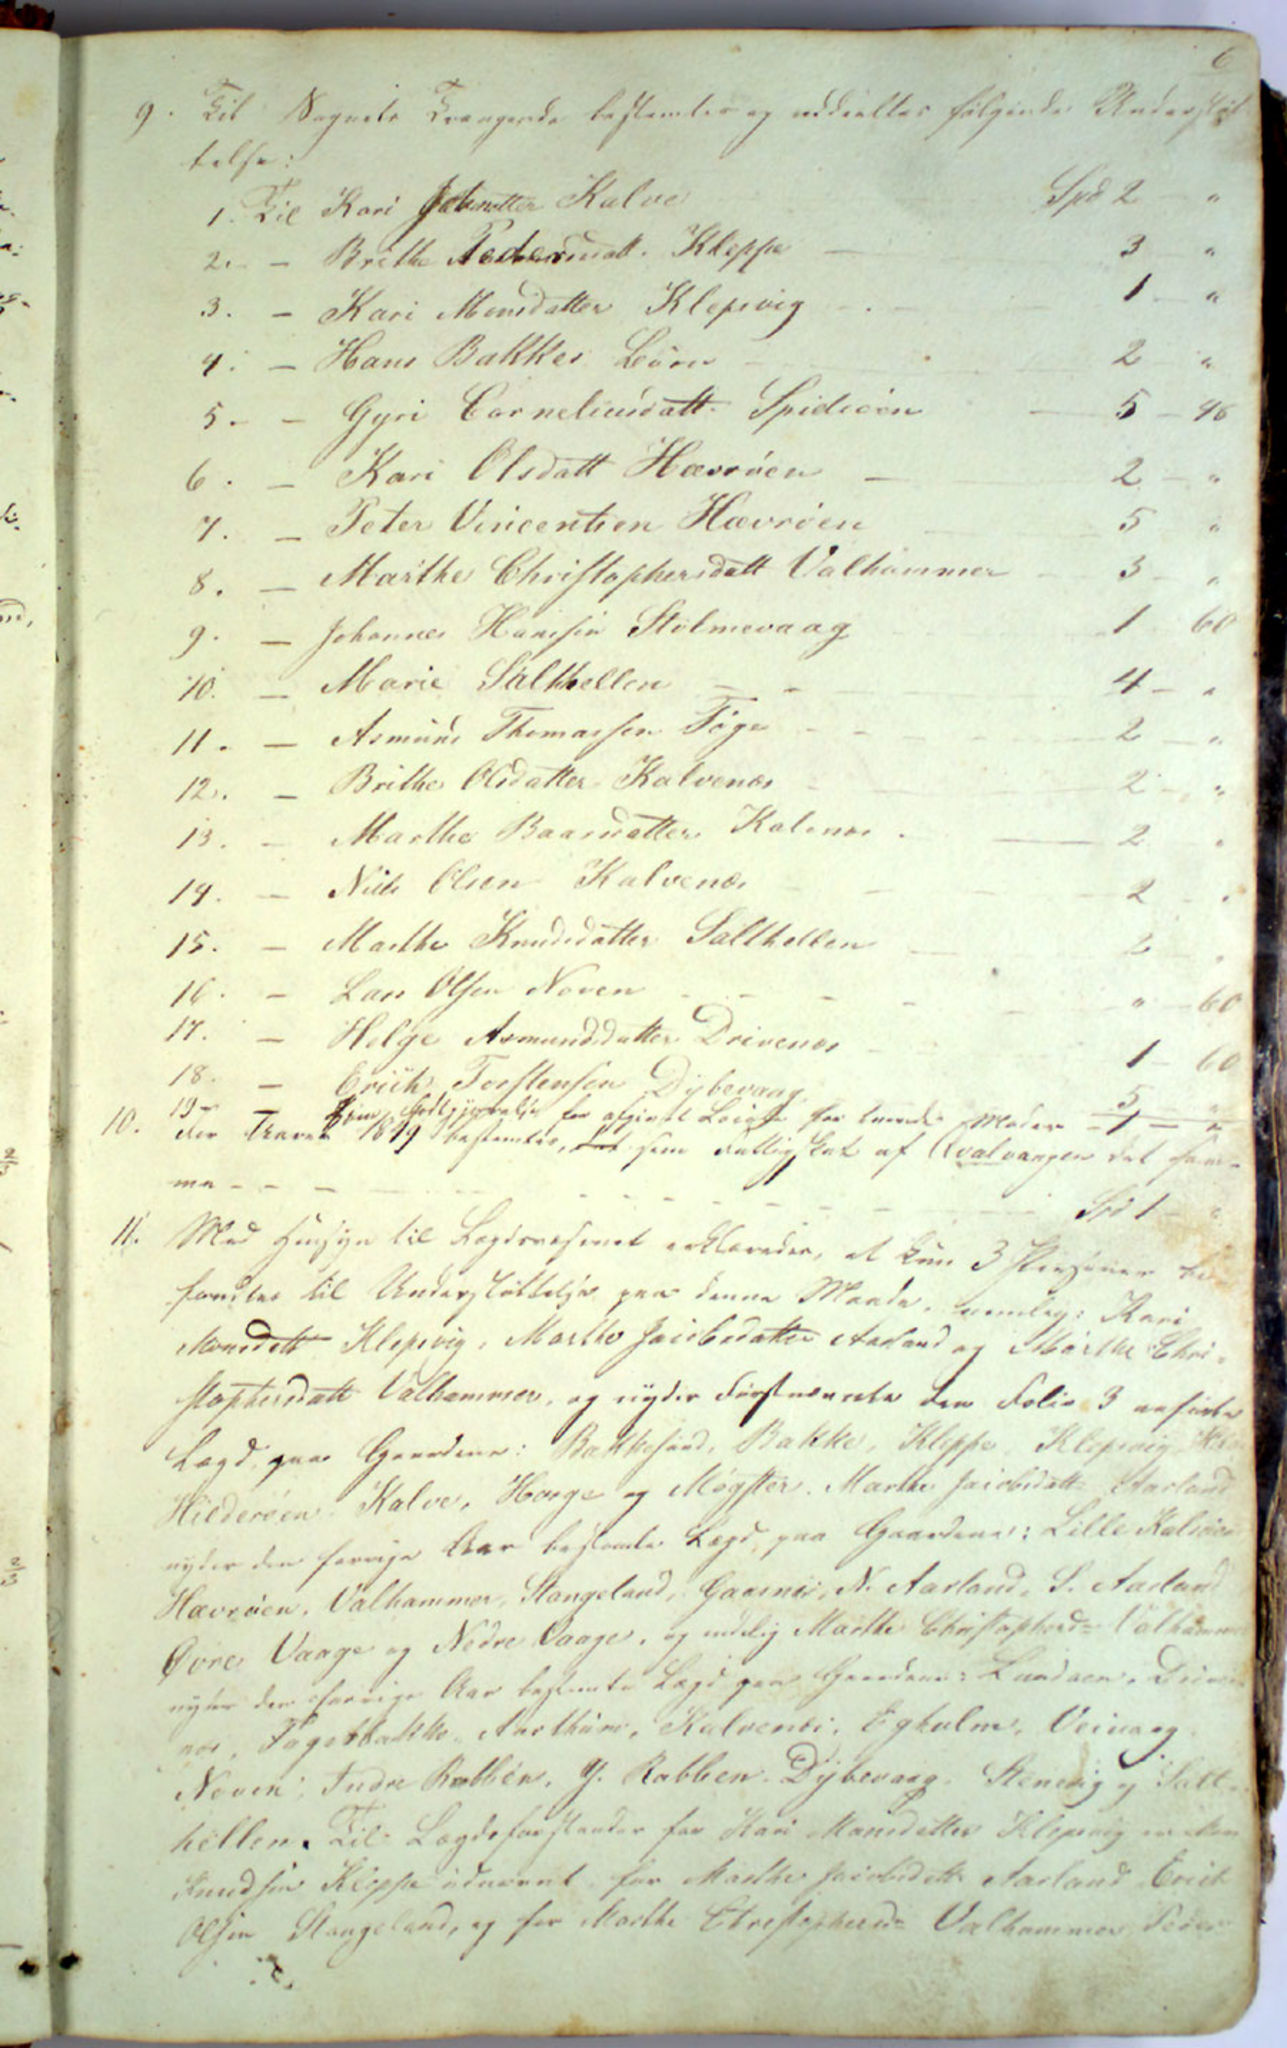 6
9. Til Sognets Trængende bestemtes og uddeeltes følgende Understøt-
telse:
1. Til Kari Johnsdatter Kalve Spd 2 - "
2. - Brithe Pedersdatt. Kleppe - 3 - "
3. - Kari Monsdatter Klepsvig - 1 - "
4. - Hans Bakkes Børn - 2 - "
5. - Gyri Corneliusdatt Spidsøen - 5 - 46
6. - Kari Olsdatt Hævrøen - 2 - "
7. - Peter Vincentsen Hævrøen 5 "
8. - Marthe Christophersdatt Valhammer - 3 - "
9. - Johannes Hansen Stolmevaag 1 - 60
10. - Marie Saltkellen - - 4 - "
11. - Asmund Thomassen Føge - - 2 - "
12. - Brithe Olsdatter Kalvenæs - 2 - "
13. - Marthe Baarsdatter Kalvenæs - 2 "
14. - Nils Olsen Kalvenæs - 2 - "
15. - Marthe Knudsdatter Salthellen - 2 - "
16. - Lars Olsen Noven - - - " - 60
17. - Helge Asmundsdatter Drivenæs - 1 - 60
18. - Erich Torstensen Dybevaag 5 "
19 - Godtgjørelse for afgivet Løisa for hendes Moder - 1 - "
10. For Aaret 1849 bestemtes, som Fattigskat af Qvalvaagen det sam-
me - - - - - - - - - - Spd 1 - "
11. Med Hensyn til Lægdsvæsenet erklæredes, at kun 3 Personer be-
fandtes til Understøttelse paa denne Maade, nemlig: Kari
Monsdatt Klepsvig, Marthe Jacobsdatter Aarland og Marthe Chri-
stophersdatt Valhammer, og nyder Førstnævnte den Folio 3 anførte
Lægd paa Gaardene: Bakkesund, Bakke, Kleppe, Klepsvig,
Hilderøen, Kalve, Horge og Møgster. Marthe Jacobsdatt Aarland
nyder den forrige Aar bestemte Lægd paa Gaardene: Lille Kalsøen
Hævrøen, Valhammer, Stangeland, Gaasnæs, N. Aarland, S. Aarland
Øvre Vaage og Nedre Vaage, og endelig Marthe Christophersd= Valhammer
nyder den forrige Aar bestemte Lægd paa Gaardene: Landaen, Drive-
næs, Fagerbakke, Aarthun, Kalvenæs, Egholm, Veivaag,
Noven, Indre Rabben, Y. Rabben, Dybevaag, Stenevig og Salt-
hellen. Til Lægdsforstander for Kari Monsdatter Klepsvig er
Knudsen Kleppe udnævnt, for Marthe Jacobsdatt Aarland Erich
Olsen Stangeland, og for Marthe Christophersd= Valhammer Peder